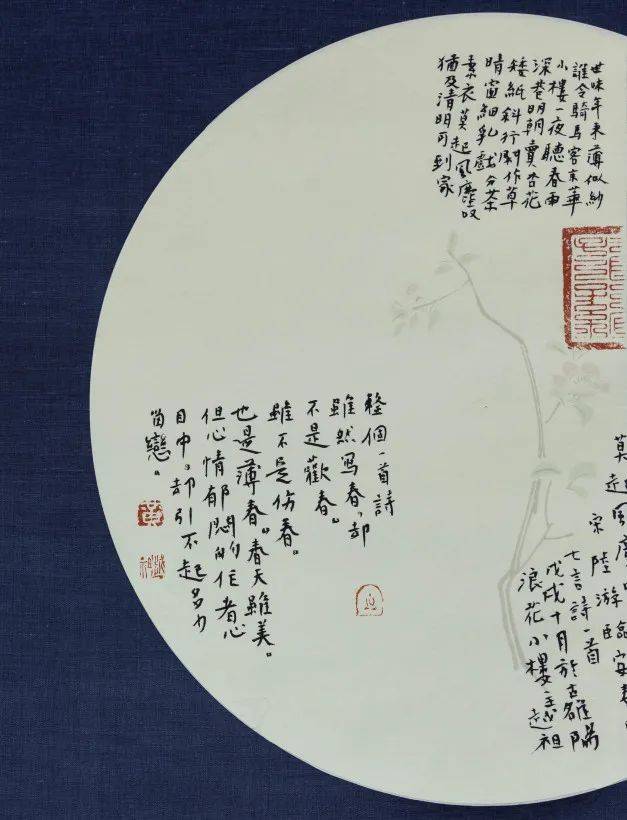 世味年來薄似紗
誰令騎馬客京華
小樓一夜聽春雨
深巷明朝賣杏花
矮紙斜行閑作草
晴窗細乳戲分茶
素衣莫起風塵叹
猶及清明可到家
莫起風
宋陸游臨安春
七言詩一首
戊戌十月於古雒陽
浪花小樓主越祖
整個一首詩
雖然写春，却
不是歡春。
雖不是伤春。
也是薄春。春天雖美。
但心情郁悶的作者心
目中，却引不起多少
留戀。
黃
越祖